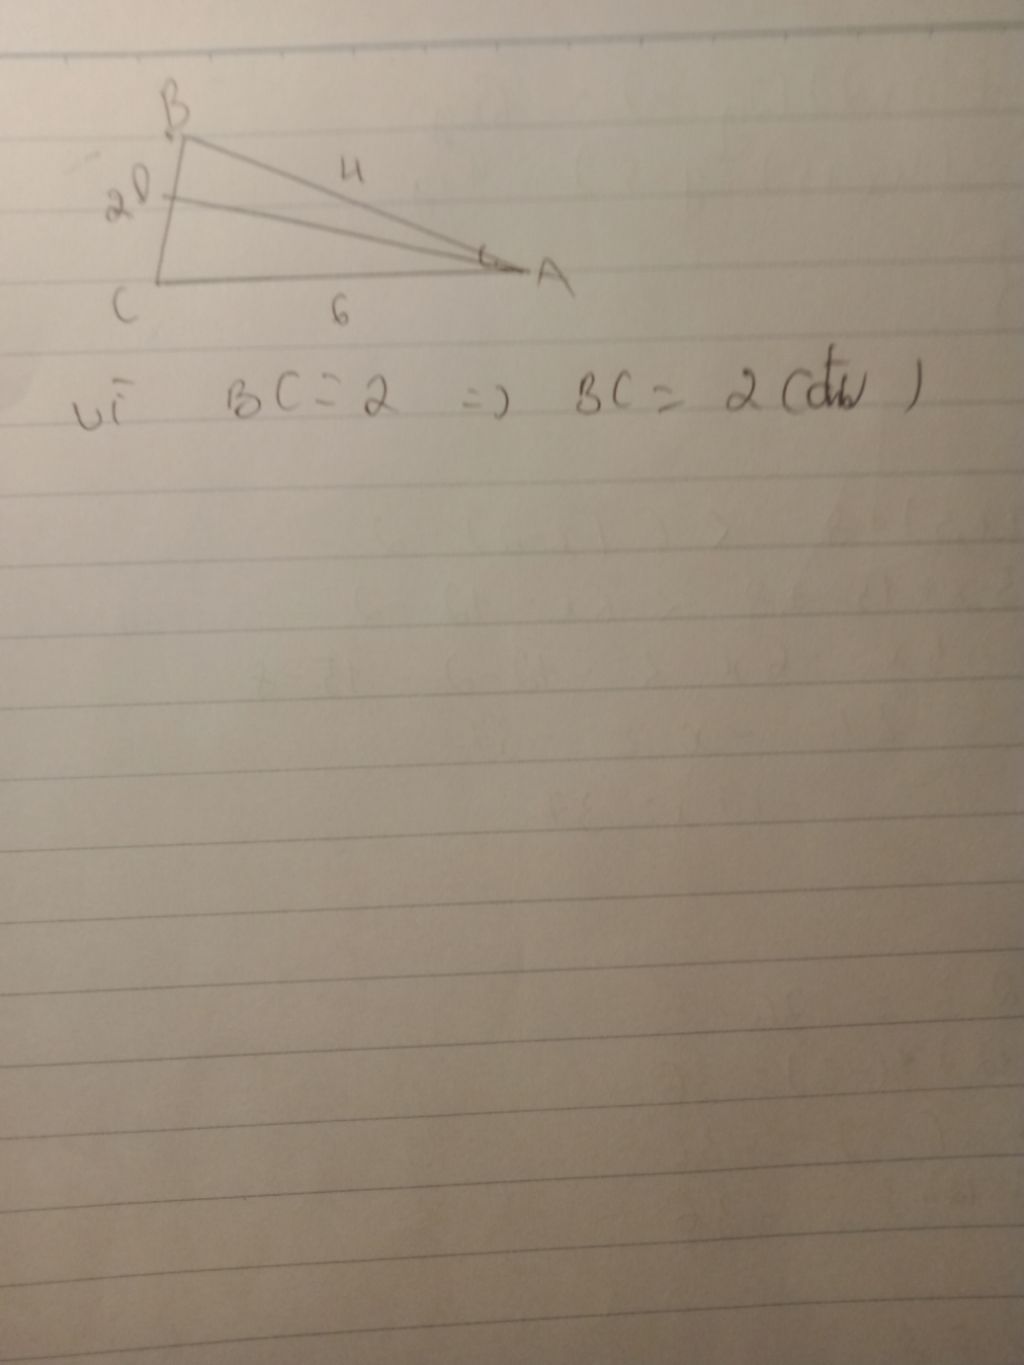 B
4
2 D
A
C
6
vì BC = 2 => BC = 2 (đvđd)